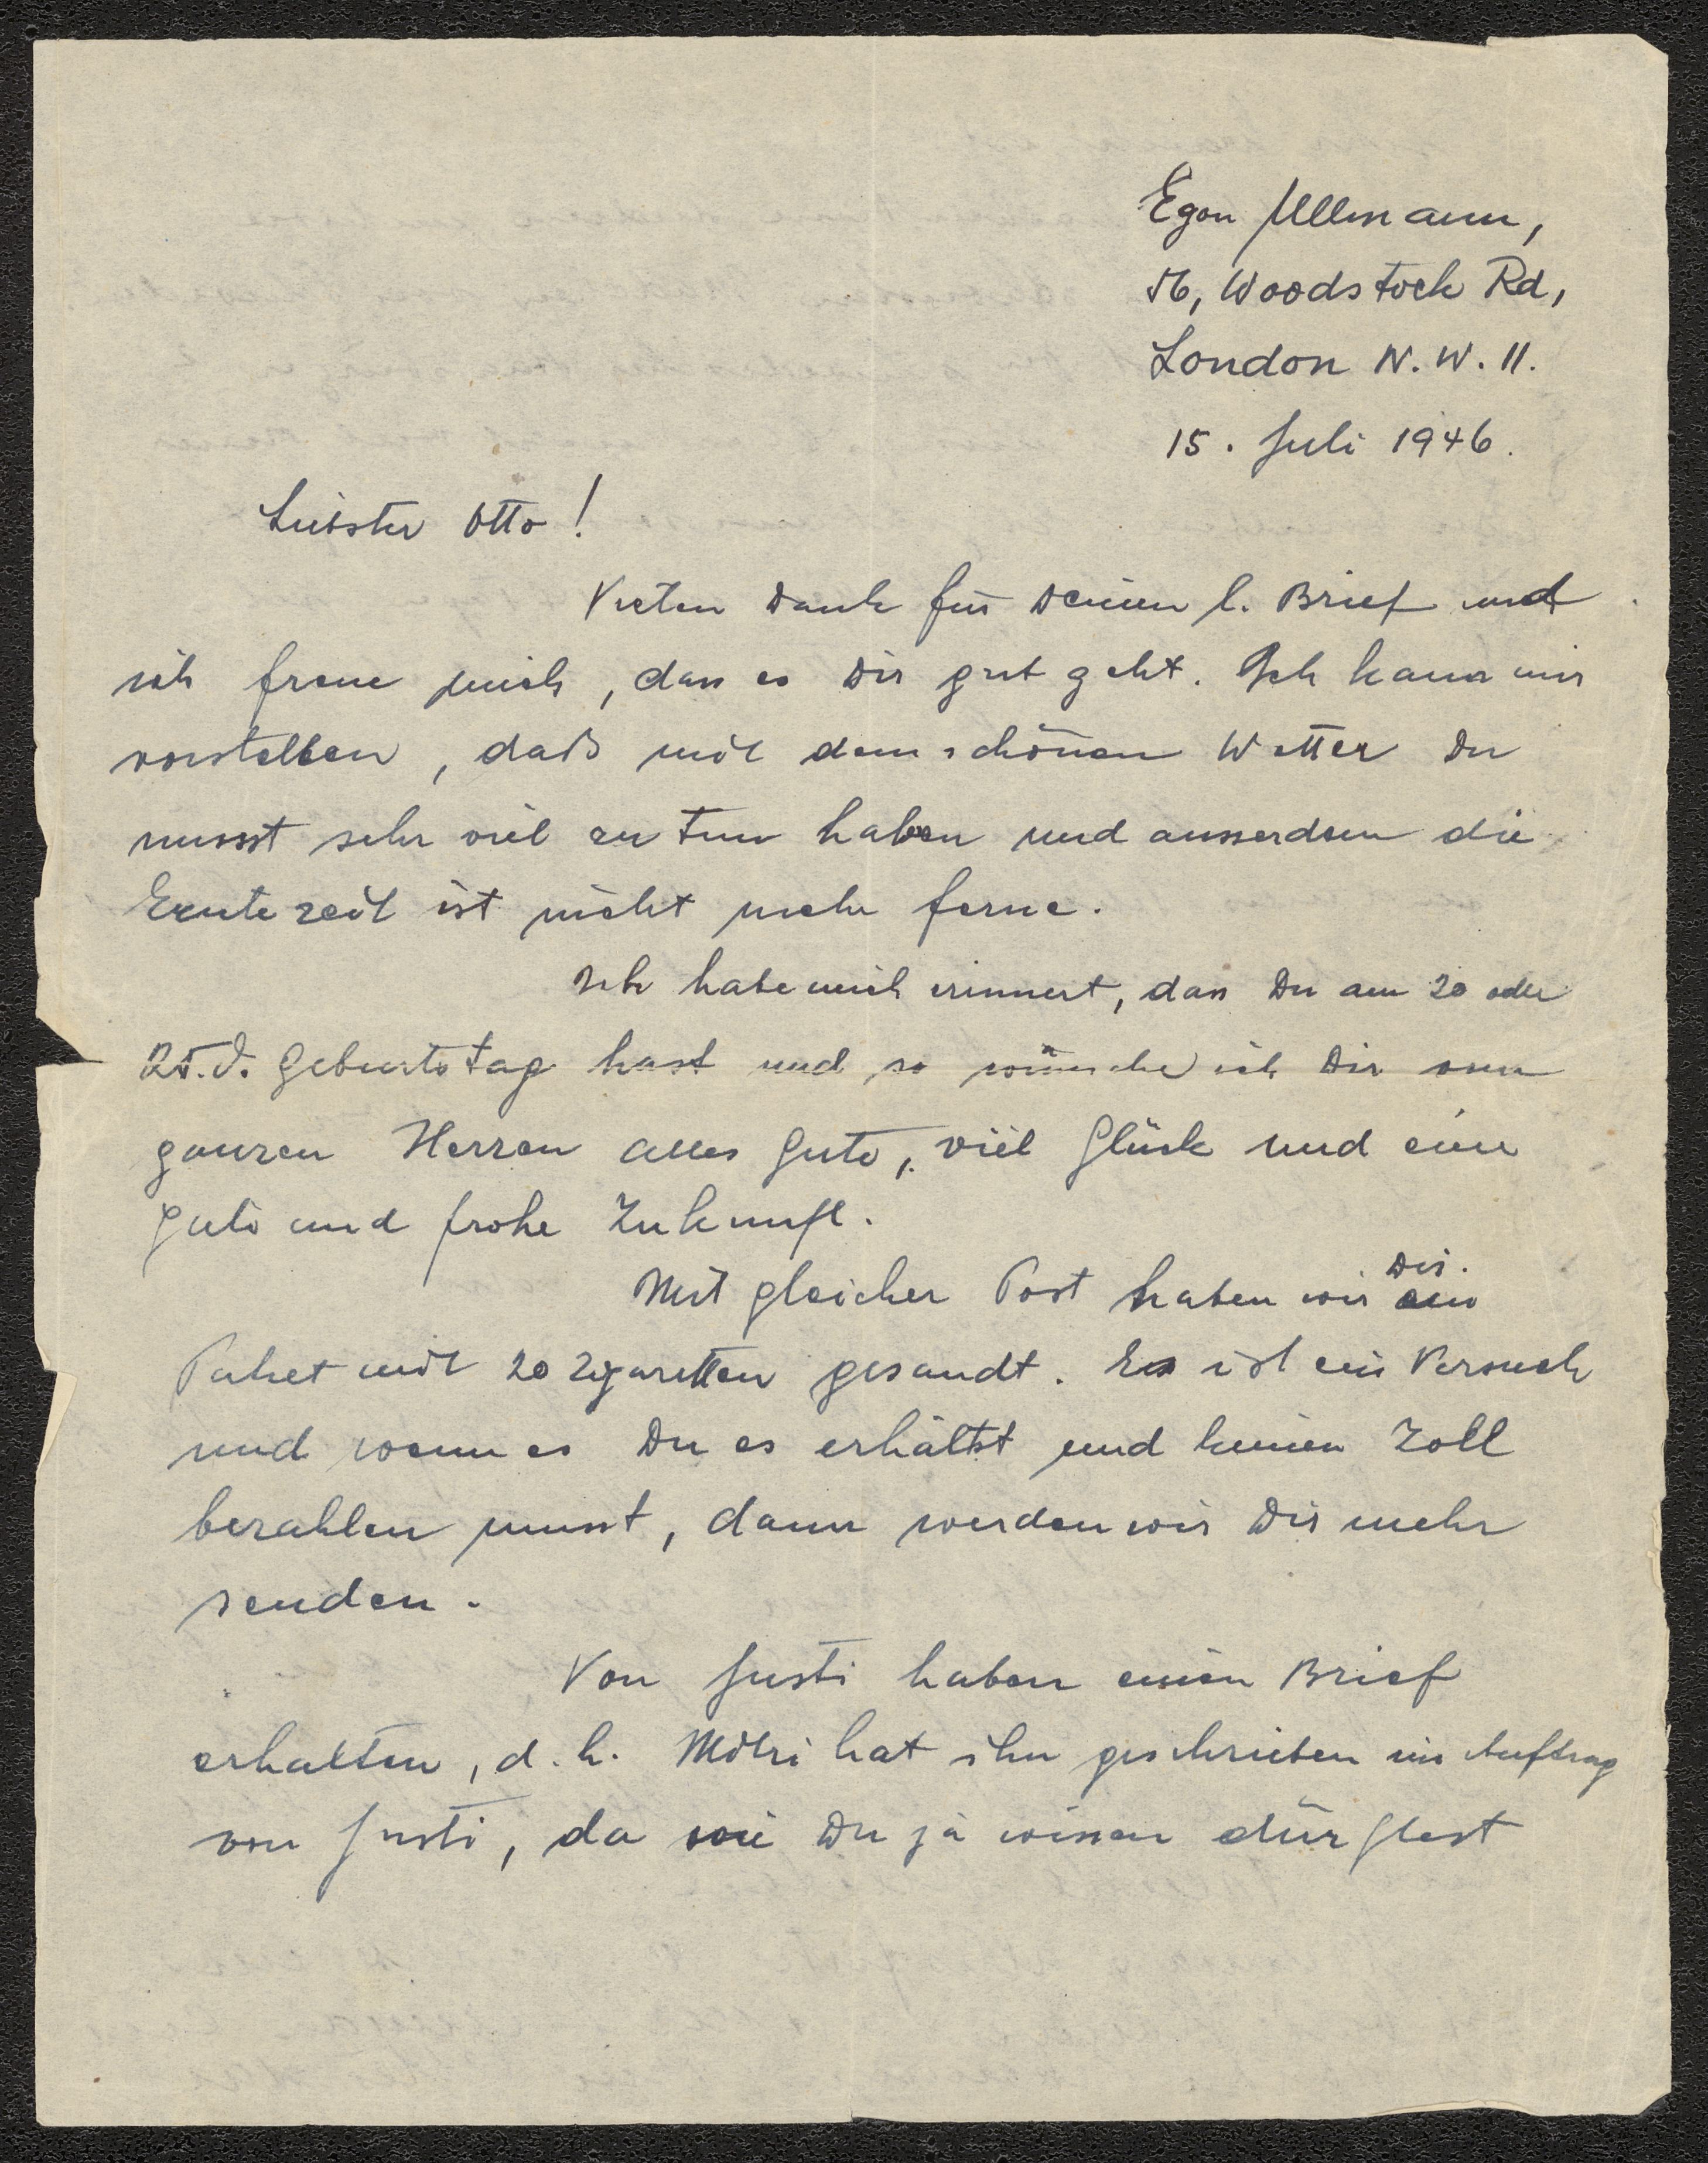 Egon Ullmann,
56, Woodstock Rd,
London N.W. 11.
15. Juli 1946.
Liebster Otto!
Vielen Dank für Deinen l. Brief und
ich freue mich, dass es Dir gut geht. Ich kann mir
vorstellen, daß mit dem schönen Wetter Du
musst sehr viel zu tun haben und ausserdem die
Erntezeit ist nicht mehr ferne.
Ich habe mich erinnert, dass Du am 20 oder
25. d. Geburtstag hast und so wünsche ich Dir vom
ganzen Herzen alles Gute, viel Glück und eine
gute und frohe Zukunft.
Dir.
Mit gleicher Post haben wir ein
Paket mit 20 Zigaretten gesandt. Es ist ein Versuch
und wenn es Du es erhältst und keinen Zoll
bezahlen musst, dann werden wir Dir mehr
senden.
Von Justi haben einen Brief
erhalten, d.h. Mitzi hat ihn geschrieben im Auftrag
von Justi, da wie Du ja wissen dürftest